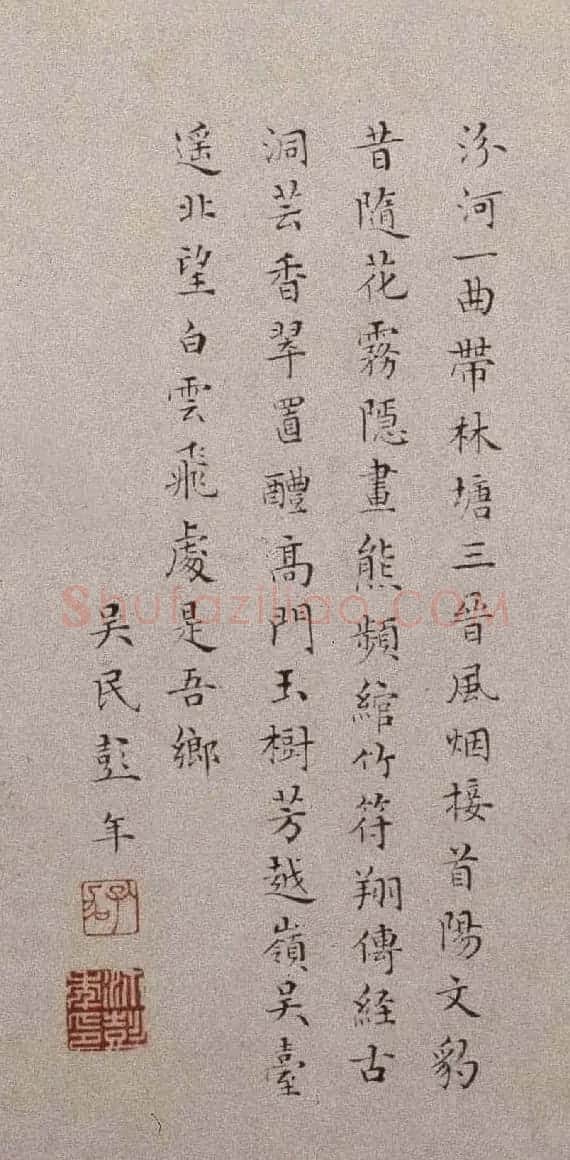 汾河一曲帶林塘三晉風烟接首陽文豹
昔隨花霧隱畫熊頻綰竹符翔傳經古
洞芸香翠置醴高門玉樹芳越嶺吳臺
遥北望白雲飛處是吾鄉
吴民彭年
Shufaziliao.COM